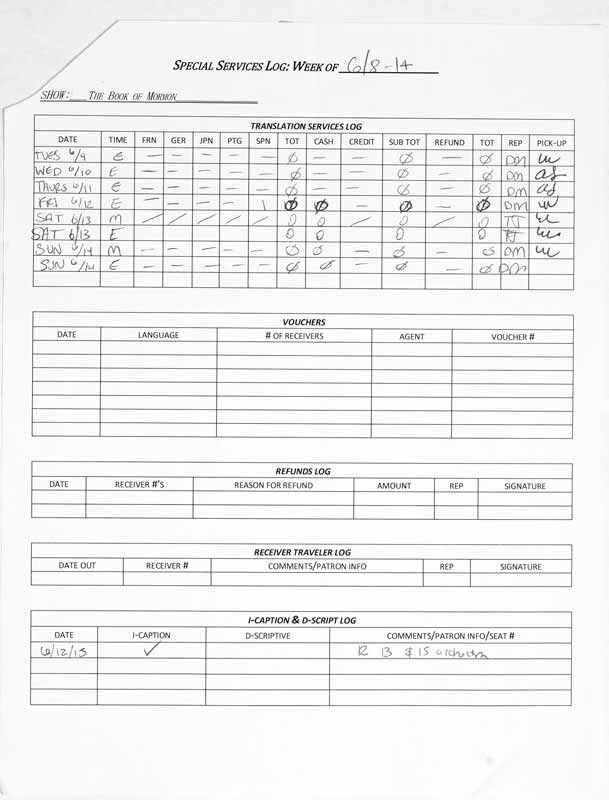 SPECIAL SERVICES LOG: WEEK OF 6/8-14
SHOW: THE BOOK OF MORMON
TRANSLATION SERVICES LOG
DATE TIME FRN GER JPN PTG SPN TOT CASH CREDIT SUB TOT REFUND TOT REP PICK-UP
TUES 6/9 E — — — — — Ø — — Ø — Ø DM
WED 6/10 E — — — — — Ø — — Ø — Ø DM
THURS 6/11 E — — — — — Ø — — Ø — Ø DM
FRI 6/12 E — — — — \ Ø Ø — Ø — Ø DM
SAT 6/13 M / / / / / 0 0 / 0 / 0
SAT 6/13 E 0 0 0 0
SUN 6/14 M — — — — — 0 0 — Ø — 0 DM
SUN 6/14 E — — — — — Ø Ø — Ø — Ø DM
VOUCHERS
DATE LANGUAGE # OF RECEIVERS AGENT VOUCHER #
REFUNDS LOG
DATE RECEIVER #'S REASON FOR REFUND AMOUNT REP SIGNATURE
RECEIVER TRAVELER LOG
DATE OUT RECEIVER # COMMENTS/PATRON INFO REP SIGNATURE
I-CAPTION & D-SCRIPT LOG
DATE I-CAPTION D-SCRIPTIVE COMMENTS/PATRON INFO/SEAT #
6/12/15 ✓ R 13 & 15 orchestra